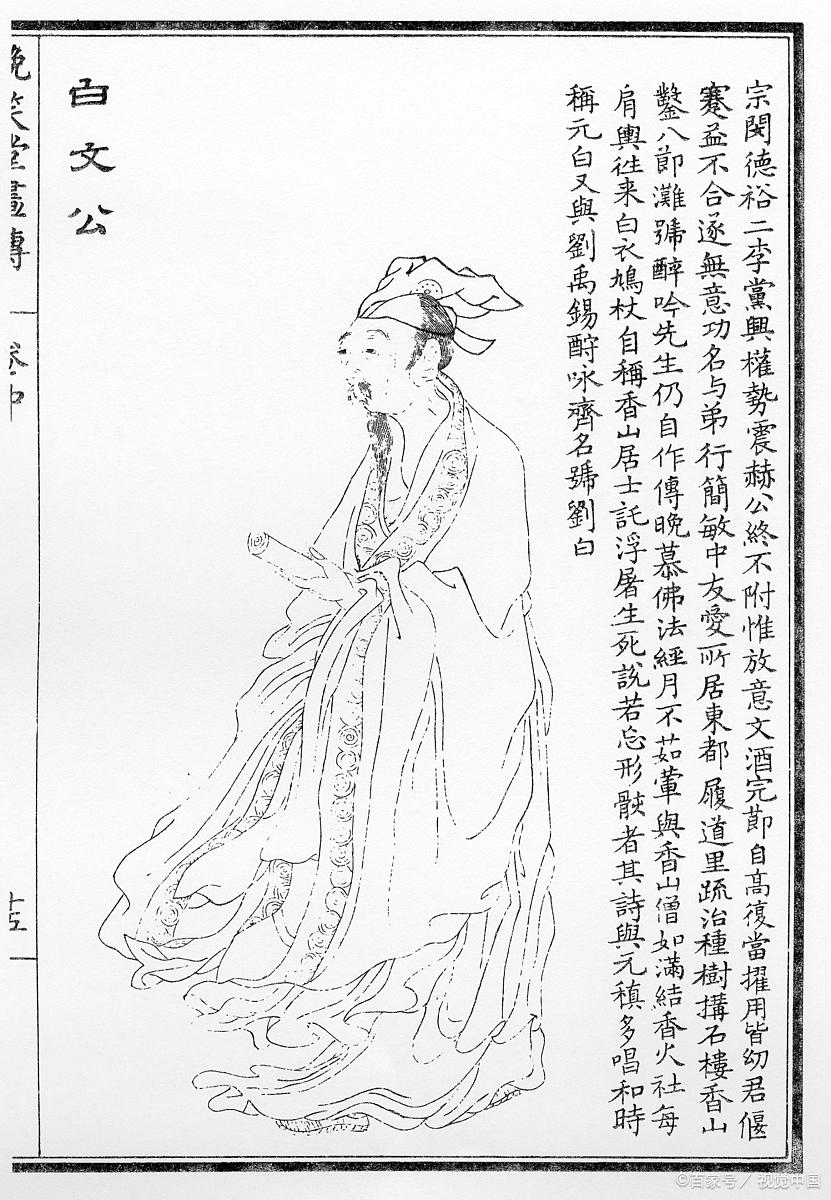 宗閔德裕二李黨興權勢震赫公終不附惟放意文酒完節自高復當擢用皆幼君偃
蹇益不合遂無意功名与弟行簡敏中友愛所居東都履道里疏治種樹搆石樓香山
鑿八節灘號醉吟先生仍自作傳晚慕佛法經月不茹葷與香山僧如滿結香火社每
肩輿往来白衣鳩杖自稱香山居士託浮屠生死說若忘形骸者其詩與元稹多唱和時
稱元白又與劉禹錫酧咏齊名號劉白
白文公
晚笑堂畫傳
卷中
十五
©百家号/视觉中国